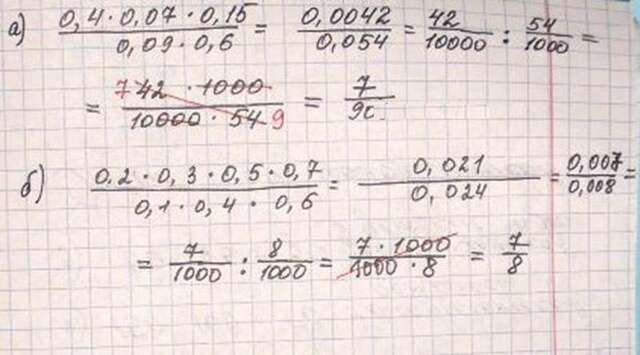 а) (0,4 · 0,07 · 0,15)/(0,09 · 0,6) = 0,0042/0,054 = 42/10000 : 54/1000 =
= (7 42 · 1000)/(10000 · 54 9) = 7/90
б) (0.2 · 0,3 · 0,5 · 0,7)/(0,1 · 0,4 · 0,6) = 0,021/0,024 = 0,007/0,008 =
= 7/1000 : 8/1000 = (7 · 1000)/(1000 · 8) = 7/8